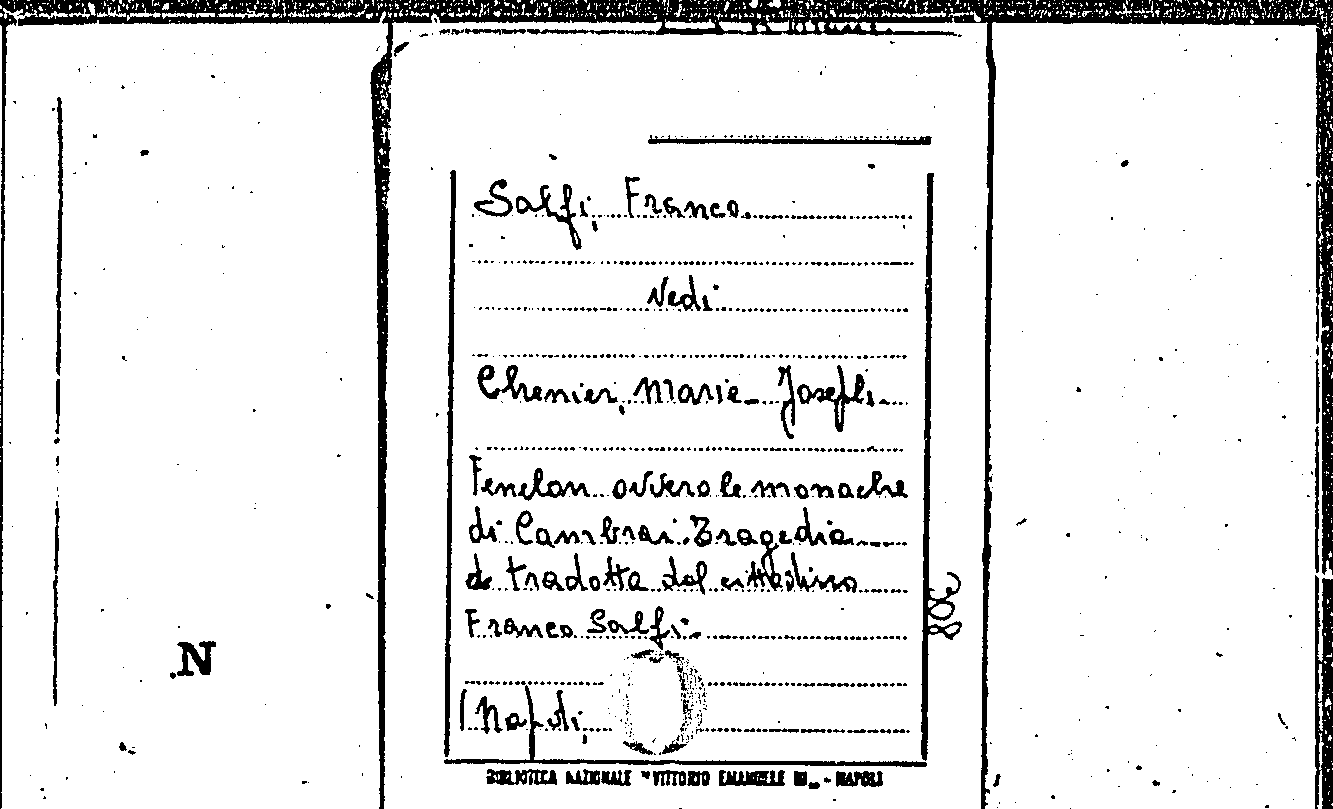 Salfi, Franco.
Vedi
Chenier, Marie-Joseph.
Fenelon ovvero le monache
di Cambrai. Tragedia
tradotta dal cittadino
Franco Salfi.
(Napoli,
BIBLIOTECA NAZIONALE "VITTORIO EMANUELE III„ - NAPOLI
N